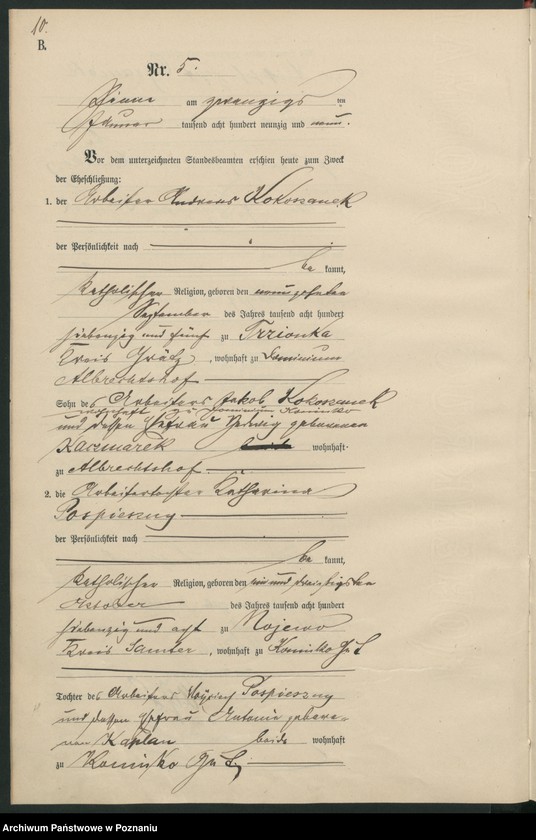 10.
B.
Nr. 5.
Pinne am zwanzigsten
Januar tausend acht hundert neunzig und neun.
Vor dem unterzeichneten Standesbeamten erschien heute zum Zweck
der Eheschließung:
1. der Arbeiter Andreas Kokoszanek
der Persönlichkeit nach
be kannt,
katholischer Religion, geboren den neunzehnten
September des Jahres tausend acht hundert
siebenzig und fünf zu Trzionka
Kreis Grätz, wohnhaft zu Dominium
Albrechtshof
Sohn des Arbeiters Jakob Kokoszanek
wohnhaft zu Dominium Komisko
und dessen Ehefrau Hedwig geborenen
Kaczmarek beide wohnhaft
zu Albrechtshof.
2. die Arbeitertochter Katharina
Pospieszny
der Persönlichkeit nach
be kannt,
katholischer Religion, geboren den ein und dreißigsten
October des Jahres tausend acht hundert
siebenzig und acht zu Nojewo
Kreis Samter, wohnhaft zu
Tochter des Arbeiters Pospieszny
und dessen Ehefrau Antonie gebore-
nen Kaplan beide wohnhaft
zu
Archiwum Państwowe w Poznaniu